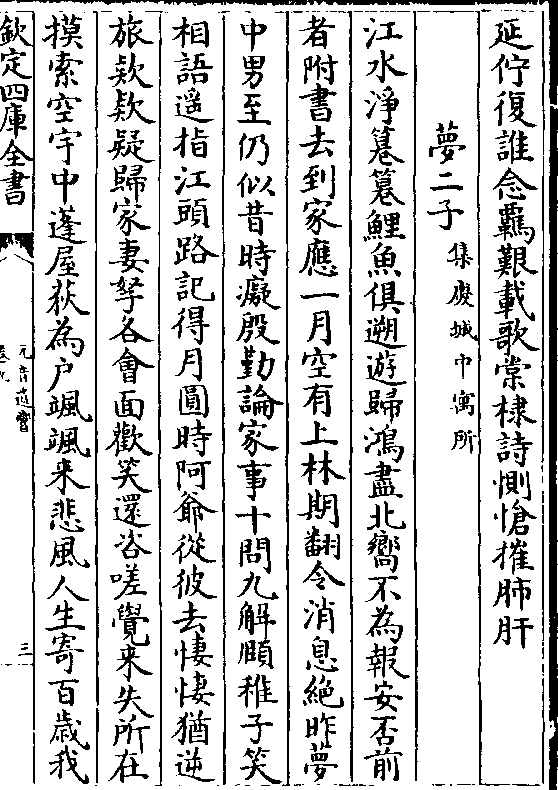 延佇復誰念羈艱載歌棠棣詩惻愴摧肺肝
夢二子集慶城中寓所
江水淨㴞㴞鯉魚俱遡遊歸鴻盡北嚮不為報安否前
者附書去到家應一月空有上林期翻令消息絶昨夢
中男至仍似昔時癡殷勤論家事十問九解頤稚子笑
相語遥指江頭路記得月圓時阿爺從彼去悽悽猶逆
旅欵欵疑歸家妻孥各會面歡笑還咨嗟覺来失所在
摸索空宇中蓬屋荻為户颯颯来悲風人生寄百歳我
欽定四庫全書
元音遺響
卷九
三